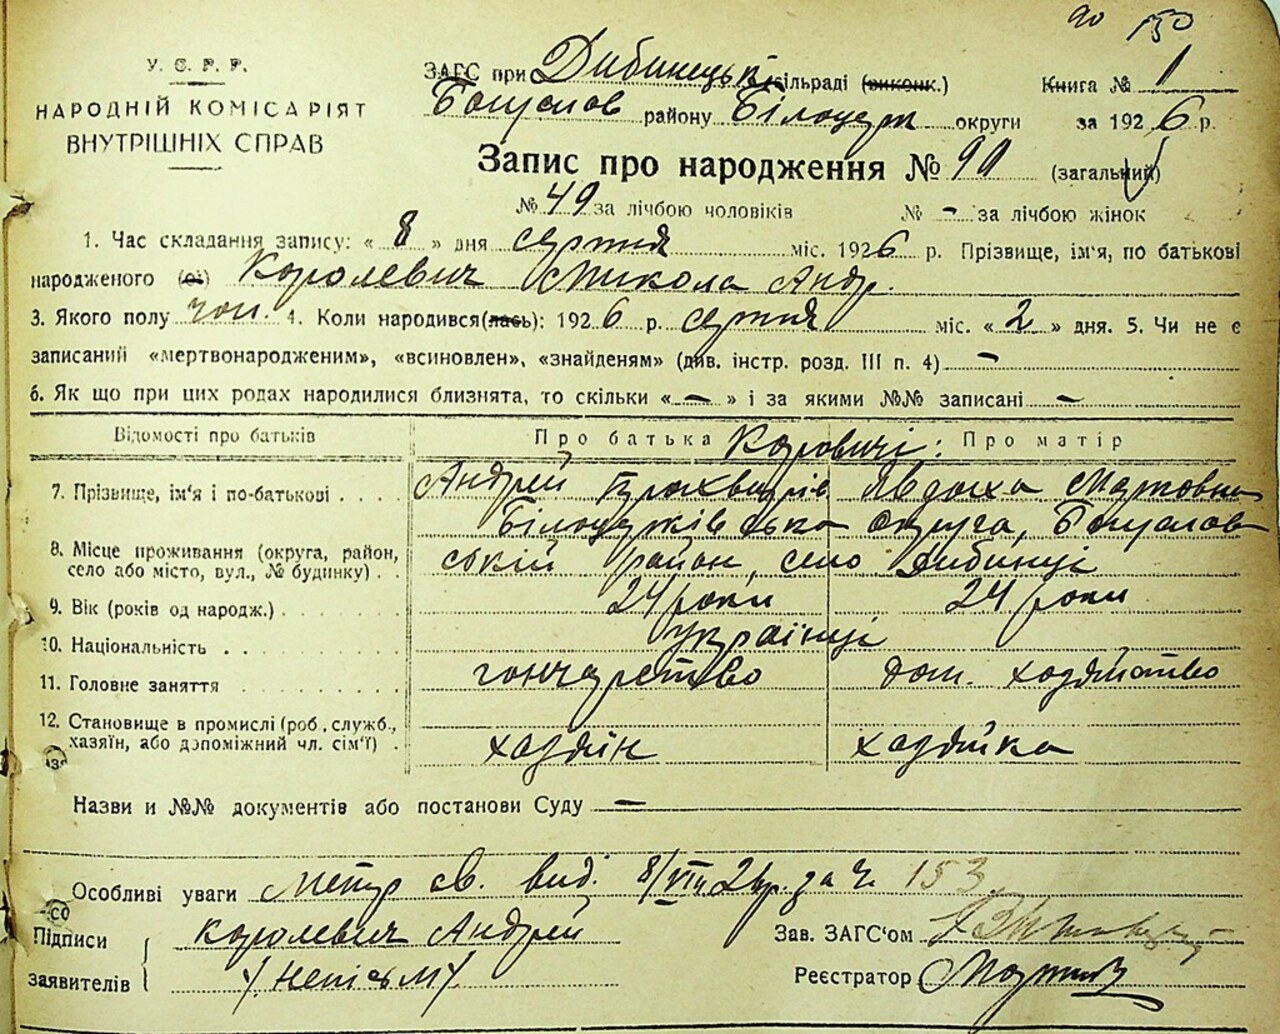 150
У. С. Р. Р.
НАРОДНІЙ КОМІСАРІЯТ
ВНУТРІШНІХ СПРАВ
ЗАГС при Дибинецькій сільраді (виконк.) Книга № 1
Богуслов району Білоцерк округи за 1926 р.
Запис про народження № 90 (загальний)
№ 49 за лічбою чоловіків № - за лічбою жінок
1. Час складання запису: « 8 » дня серпня міс. 1926 р. Прізвище, ім'я, по батькові
народженого (ої) Королевич Микола Андр.
3. Якого полу чол. 4. Коли народився(лась): 1926 р. серпня міс. « 2 » дня. 5. Чи не є
записаний «мертвонародженим», «всиновлен», «знайденям» (див. інстр. розд. III п. 4) -
6. Як що при цих родах народилися близнята, то скільки « - » і за якими №№ записані -
Відомості про батьків Про батька Про матір
7. Прізвище, ім'я і по-батькові Андрей Явдоха Марковна
Білоцерківська округа, Богуслов
8. Місце проживання (округа, район,
село або місто, вул., № будинку) ській район, село Дибинці
9. Вік (років од народж.) 24 роки 24 роки
10. Національність українці
11. Головне заняття гончарство дом. хозяйство
12. Становище в промислі (роб., служб.,
хазяїн, або допоміжний чл. сім'ї) хазяїн хазяйка
Назви и №№ документів або постанови Суду -
Особливі уваги Метр св. вид. 8/VIII 26р. за ч. 153.
Підписи Королевич Андрей Зав. ЗАГС'ом
заявителів / непісьм / Реєстратор